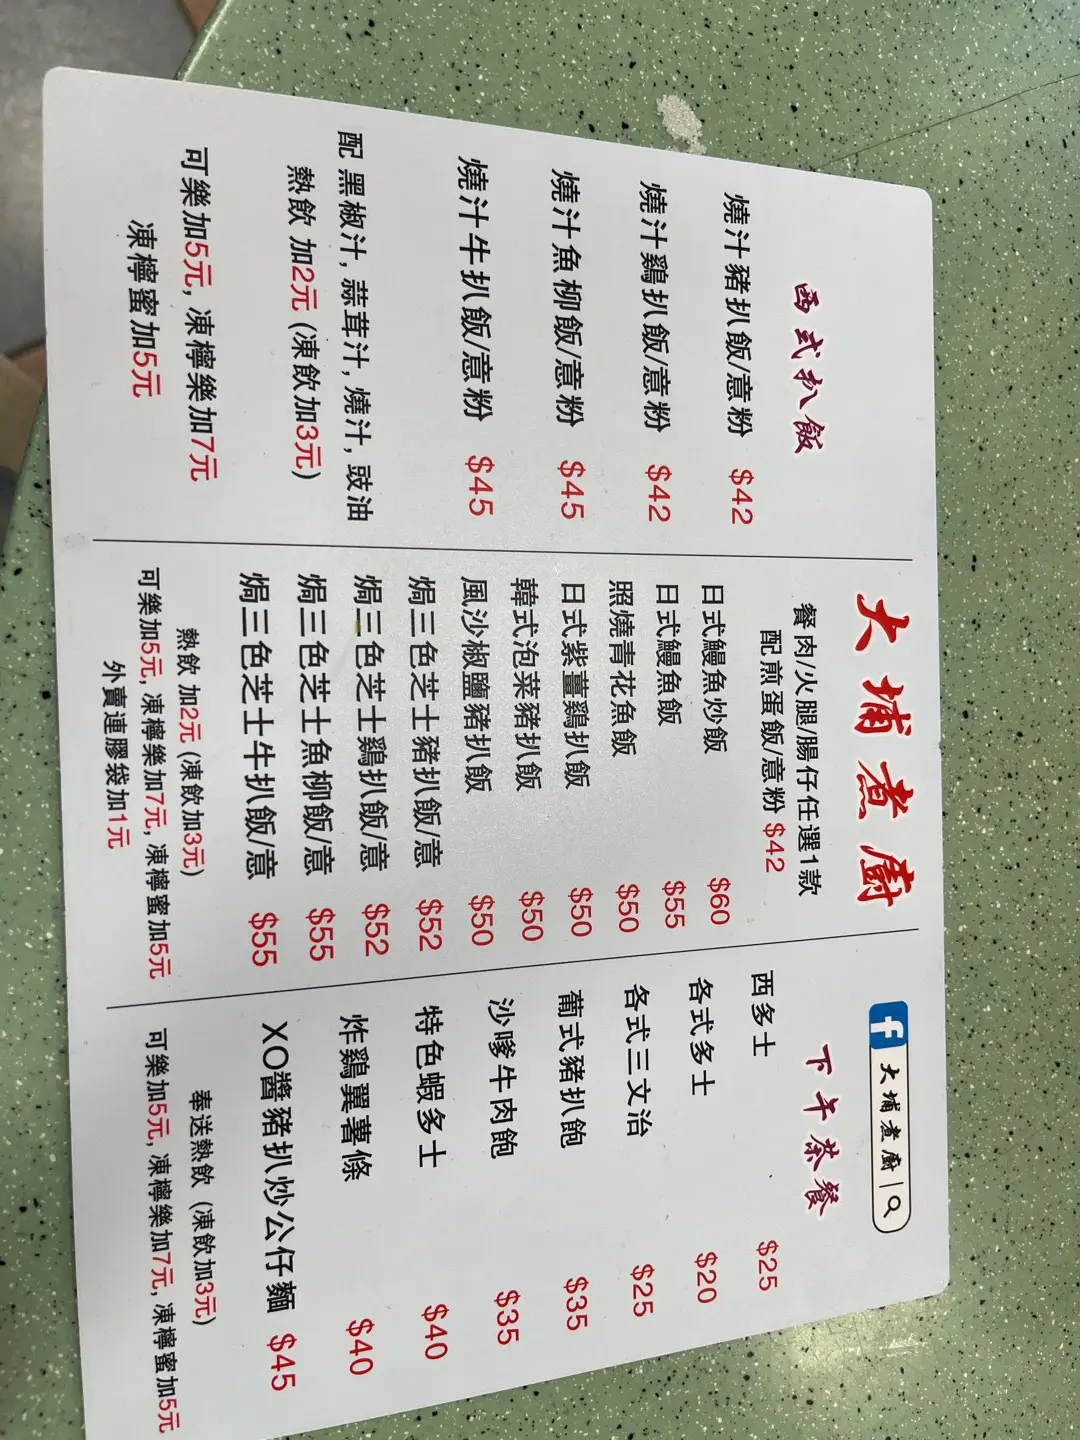 大埔煮廚
大埔煮廚
西式扒飯
燒汁豬扒飯/意粉 $42
燒汁鷄扒飯/意粉 $42
燒汁魚柳飯/意粉 $45
燒汁牛扒飯/意粉 $45
配 黑椒汁, 蒜茸汁, 燒汁, 豉油
熱飲 加2元 (凍飲加3元)
可樂加5元, 凍檸樂加7元
凍檸蜜加5元
餐肉/火腿/腸仔任選1款
配煎蛋飯/意粉 $42
日式鰻魚炒飯 $60
日式鰻魚飯 $55
照燒青花魚飯 $50
日式紫薑鷄扒飯 $50
韓式泡菜豬扒飯 $50
風沙椒鹽豬扒飯 $50
焗三色芝士豬扒飯/意 $52
焗三色芝士鷄扒飯/意 $52
焗三色芝士魚柳飯/意 $55
焗三色芝士牛扒飯/意 $55
熱飲 加2元 (凍飲加3元)
可樂加5元, 凍檸樂加7元, 凍檸蜜加5元
外賣連膠袋加1元
下午茶餐
西多士 $25
各式多士 $20
各式三文治 $25
葡式豬扒飽 $35
沙嗲牛肉飽 $35
特色蝦多士 $40
炸鷄翼薯條 $40
XO醬豬扒炒公仔麵 $45
奉送熱飲 (凍飲加3元)
可樂加5元, 凍檸樂加7元, 凍檸蜜加5元